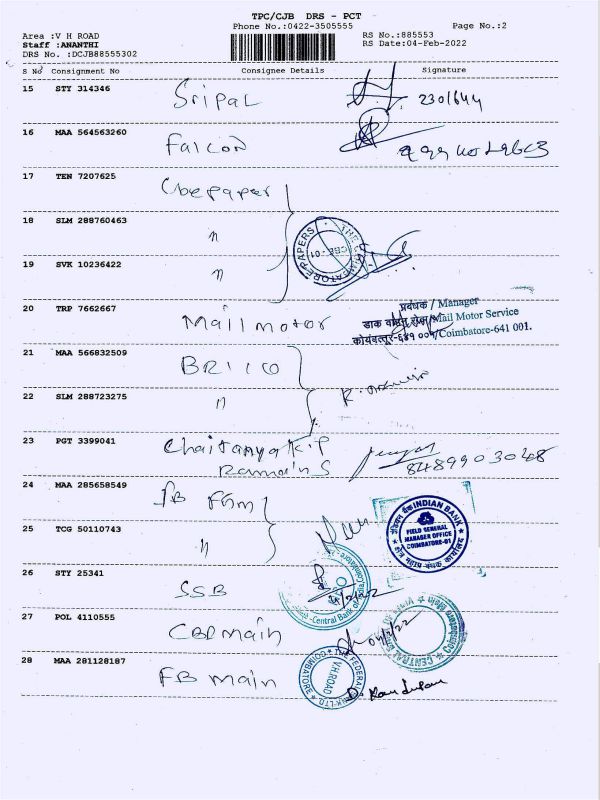 TPC/CJB DRS - PCT
Phone No.:0422-3505555
Page No.:2
Area :V H ROAD
RS No.:885553
Staff :ANANTHI
RS Date:04-Feb-2022
DRS No. :DCJB88555302
S No Consignment No Consignee Details Signature
15 STY 314346 Sripal 2301644
16 MAA 564563260 Falcon
17 TEN 7207625 Cbe paper
18 SLM 288760463 "
THE COIMBATORE PAPERS
CBE - 01
19 SVK 10236422 "
20 TRP 7662667 Mail motor
प्रबंधक / Manager
डाक वाहन सेवा/Mail Motor Service
कोयंबत्तूर-६४१ ००१/Coimbatore-641 001.
21 MAA 566832509
22 SLM 288723275 "
23 PGT 3399041 Chaitanya K.P
Ramain S
8489903048
24 MAA 285658549 IB FGM
INDIAN BANK
FIELD GENERAL
MANAGER OFFICE
COIMBATORE-01
25 TCG 50110743 "
26 STY 25341 SSB
Central Bank of India
27 POL 4110555 CBI main
CENTRAL
28 MAA 281128187 FB main
THE FEDERAL BANK LTD. COIMBATORE
V.H.ROAD